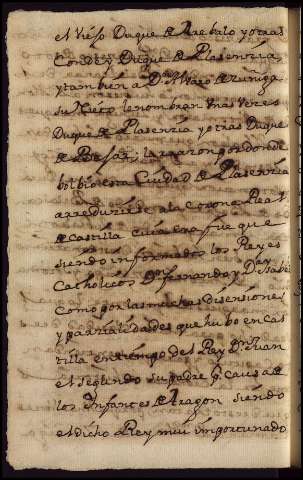 el viejo Duque de Arebalo y otras
Conde y Duque de Plasenzia
y tambien a Dn Alvaro de Zuñiga
su Nieto le nombran unas vezes
Duque de Plasenzia y otras Duque
de Bejar; la razon por donde
bolbio esta Ciudad de Plasenzia
a redduzirse a la Corona Real
de Castilla cuia ena fue que
siendo informados los Reyes
Catholicos Dn fernando y Dª Isabel
como por las muchas disensiones
y parzialidades que hubo en Cas
tilla en tiempo del Rey Dn Juan
el segundo su padre pr causa de
los Infantes de Aragon siendo
el dicho Rey mui importunado